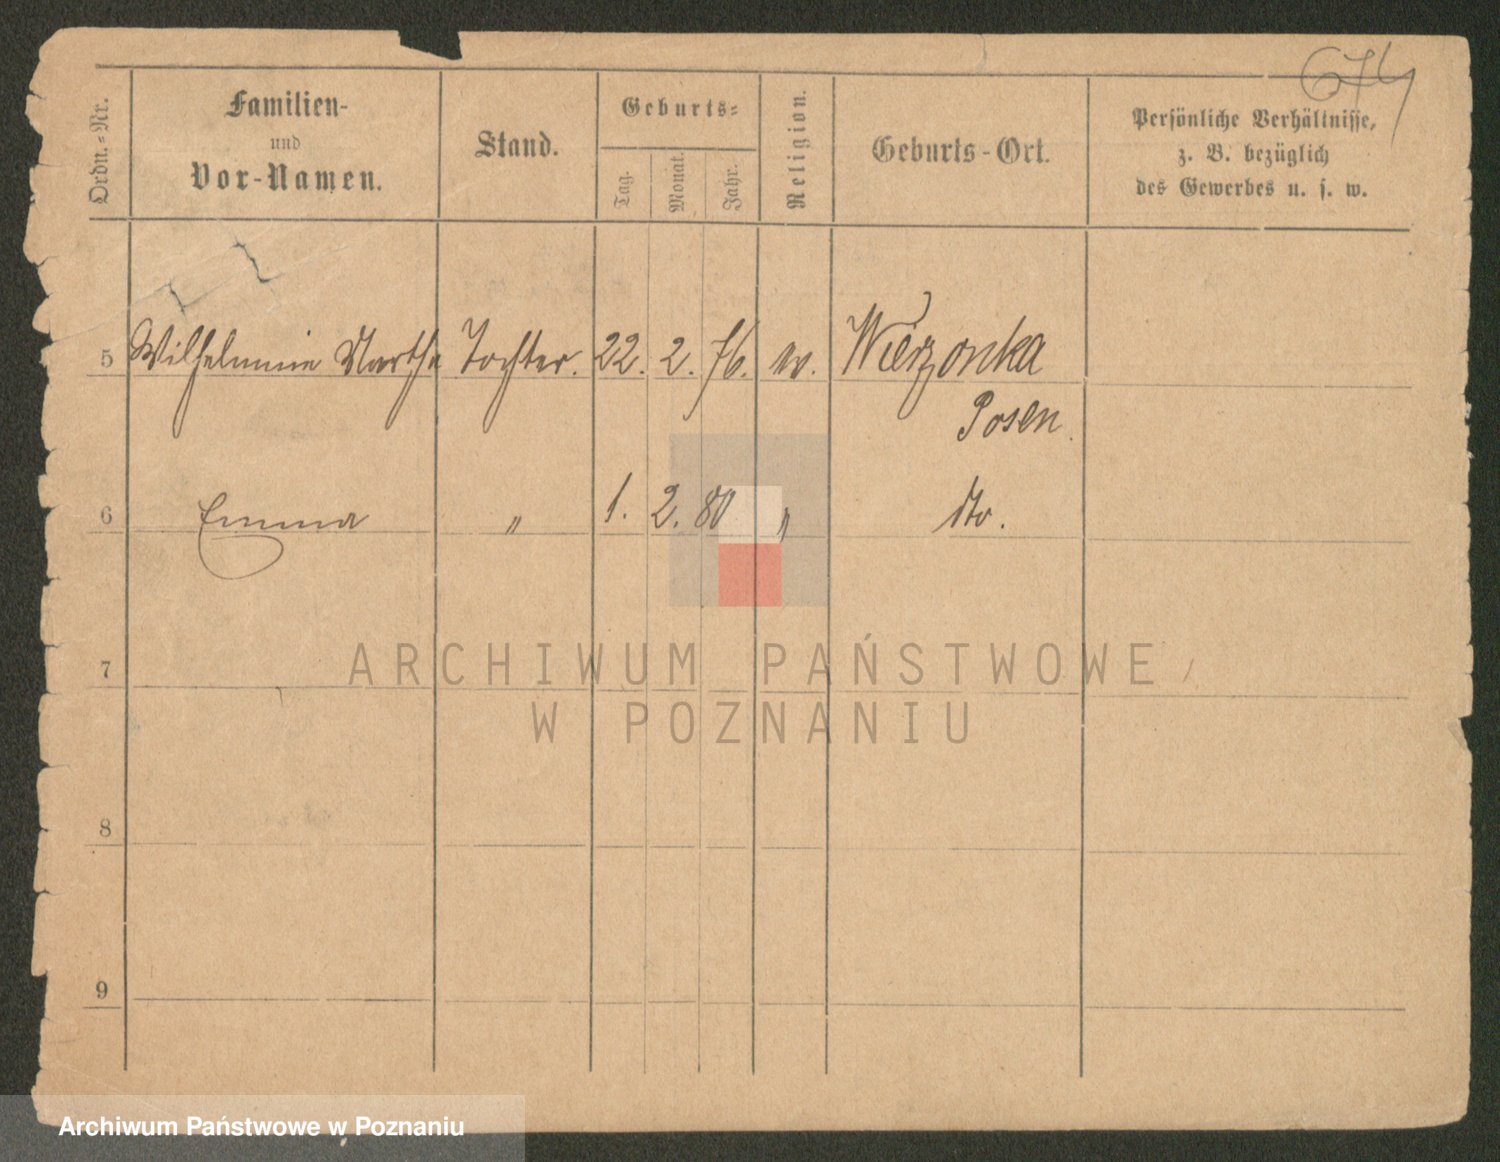 674
Ordn.-Nr.
Familien-
und
Vor-Namen.
Stand.
Geburts-
Tag.
Monat.
Jahr.
Religion.
Geburts-Ort.
Persönliche Verhältnisse,
z. B. bezüglich
des Gewerbes u. s. w.
5 Wilhelmine Martha Tochter. 22. 2. 76. ev. Wierzonka
Posen.
6 Emma " 1. 2. 80 " dto.
7
8
9
ARCHIWUM PAŃSTWOWE
W POZNANIU
Archiwum Państwowe w Poznaniu